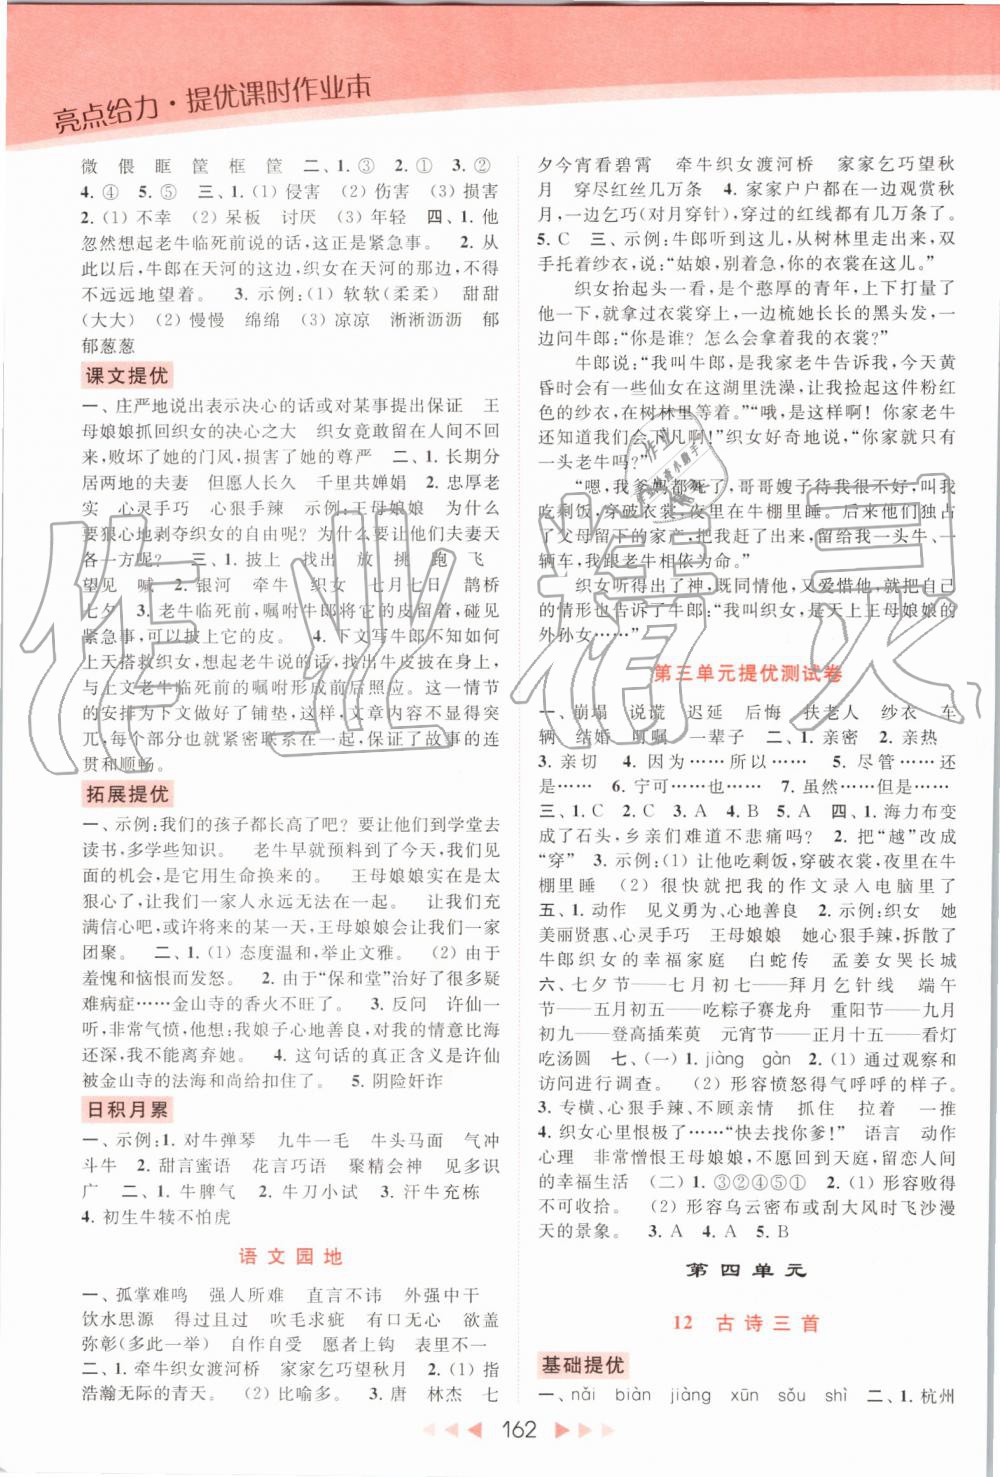 亮点给力·提优课时作业本
微　偎　眶　筐　框　筐　二、1. ③　2. ①　3. ②
4. ④　5. ⑤　三、1. (1) 侵害　(2) 伤害　(3) 损害
2. (1) 不幸　(2) 呆板　讨厌　(3) 年轻　四、1. 他
忽然想起老牛临死前说的话,这正是紧急事。　2. 从
此以后,牛郎在天河的这边,织女在天河的那边,不得
不远远地望着。　3. 示例:(1) 软软(柔柔)　甜甜
(大大)　(2) 慢慢　绵绵　(3) 凉凉　淅淅沥沥　郁
郁葱葱
课文提优
一、庄严地说出表示决心的话或对某事提出保证　王
母娘娘抓回织女的决心之大　织女竟敢留在人间不回
来,败坏了她的门风,损害了她的尊严　二、1. 长期分
居两地的夫妻　但愿人长久　千里共婵娟　2. 忠厚老
实　心灵手巧　心狠手辣　示例:王母娘娘　为什么
要狠心地剥夺织女的自由呢?为什么要让他们夫妻天
各一方呢?　三、1. 披上　找出　放　挑　跑　飞
望见　喊　2. 银河　牵牛　织女　七月七日　鹊桥
七夕　3. 老牛临死前,嘱咐牛郎将它的皮留着,碰见
紧急事,可以披上它的皮。　4. 下文写牛郎不知如何
上天搭救织女,想起老牛的嘱咐,披上牛皮飞上天去,
与上文老牛临死前的嘱咐形成前后照应。这一情节
的安排为下文做了铺垫,这样,文章内容不会显得突
兀,每个部分也就紧密联系在一起,保证了故事的连
贯和顺畅。
拓展提优
一、示例:我们的孩子都长高了呢?要让他们到学堂去
读书,多学些知识。　老牛早就预料到了今天,我们见
面的机会,是它用生命换来的。　王母娘娘实在是太
狠心了,让我们一家人永远无法在一起。　让我们充
满信心,或许在将来的某一天,王母娘娘会让我们一家
团聚。　二、1. (1) 态度温和,举止文雅。　(2) 由于
羞愧和恼恨而发怒。　2. 由于“保和堂”治好了很多疑
难病症……金山寺的香火不旺了。　3. 反问　许仙一
听,非常气愤,他想:我娘子心地善良,对我的情意比海
还深,我不能离弃她。　4. 这句话的真正含义是许仙
被金山寺的法海和尚给扣住了。　5. 阴险奸诈
日积月累
一、示例:1. 对牛弹琴　九牛一毛　牛头马面　气冲
斗牛　2. 甜言蜜语　花言巧语　聚精会神　见多识
广　二、1. 牛脾气　2. 牛刀小试　3. 汗牛充栋
4. 初生牛犊不怕虎
语文园地
一、孤掌难鸣　强人所难　直言不讳　外强中干
饮水思源　得过且过　吹毛求疵　亡羊补牢　欲盖
弥彰(多此一举)　自作自受　愿者上钩　表里不一
二、1. 牵牛织女渡河桥　家家乞巧望秋月　2. (1) 指
浩瀚无际的青天。　(2) 比喻多。　3. 唐　林杰　七
夕今宵看碧霄　牵牛织女渡河桥　家家乞巧望秋
月　穿尽红丝几万条　4. 家家户户都在一边观赏秋
月,一边乞巧(对月穿针),穿过的红线都有几万条了。
5. C　三、示例:牛郎听到这儿,从树林里走出来,双
手托着纱衣,说:“姑娘,别着急,你的衣裳在这儿。”
织女抬起头一看,是个憨厚的青年,上下打量了
他一下,就拿过衣裳穿上,一边梳她长长的黑头发,一
边问牛郎:“你是谁?怎么会拿我的衣裳?”
牛郎说:“我叫牛郎,是我家老牛告诉我,今天黄
昏时会有一些仙女在这湖里洗澡,让我把这件粉红
色的纱衣,在树林里等着。”“哦,是这样啊!你家老牛
还知道我们会下凡啊!”织女好奇地说,“你家就只有
一头老牛吗?”
“嗯,我爹妈都死了,哥哥嫂子待我很不好,叫我
吃剩饭,穿破衣裳,夜里在牛棚里睡。后来他们独占
了父母留下的家产,把我赶了出来,留给我一头牛、一
辆车,我跟老牛相依为命。”
织女听得出了神,既同情他,又爱惜他,就把自己
的情形也告诉了牛郎:“我叫织女,是天上王母娘娘的
外孙女……”
第三单元提优测试卷
一、崩塌　说谎　迟延　后悔　扶老人　纱衣　车
辆　结婚　叮嘱　一辈子　二、1. 亲密　2. 亲热
3. 亲切　4. 因为……所以……　5. 尽管……还
是……　6. 宁可……也……　7. 虽然……但是……
三、1. C　2. C　3. A　4. B　5. A　四、1. 海力布变
成了石头,乡亲们难道不悲痛吗?　2. 把“越”改成
“穿”　3. 示例:(1) 让他吃剩饭,穿破衣裳,夜里在牛
棚里睡　(2) 很快就把我的作文录入电脑里了
五、1. 动作　见义勇为、心地善良　2. 示例:织女　她
美丽贤惠、心灵手巧　王母娘娘　她心狠手辣,拆散了
牛郎织女的幸福家庭　白蛇传　孟姜女哭长城
六、七夕节——七月初七——拜月乞针线　端午
节——五月初五——吃粽子赛龙舟　重阳节——九月
初九——登高插茱萸　元宵节——正月十五——看灯
吃汤圆　七、(一) 1. jiàng　gàn　2. (1) 通过观察和
访问进行调查。　(2) 形容愤怒得气呼呼的样子。
3. 专横、心狠手辣、不顾亲情　抓住　拉着　一推
4. 织女心里恨极了……“快去找你爹!”　语言　动作
心理　非常憎恨王母娘娘,更加坚定了要留恋人间
的幸福生活　(二) 1. ③②④⑤①　2. (1) 形容败得
不可收拾。　(2) 形容乌云密布或刮大风时飞沙漫
天的景象。　3. A　4. A　5. B
第四单元
12　古诗三首
基础提优
一、nǎi　biàn　jiàng　xūn　sǒu　shì　二、1. 杭州
162
作业精灵